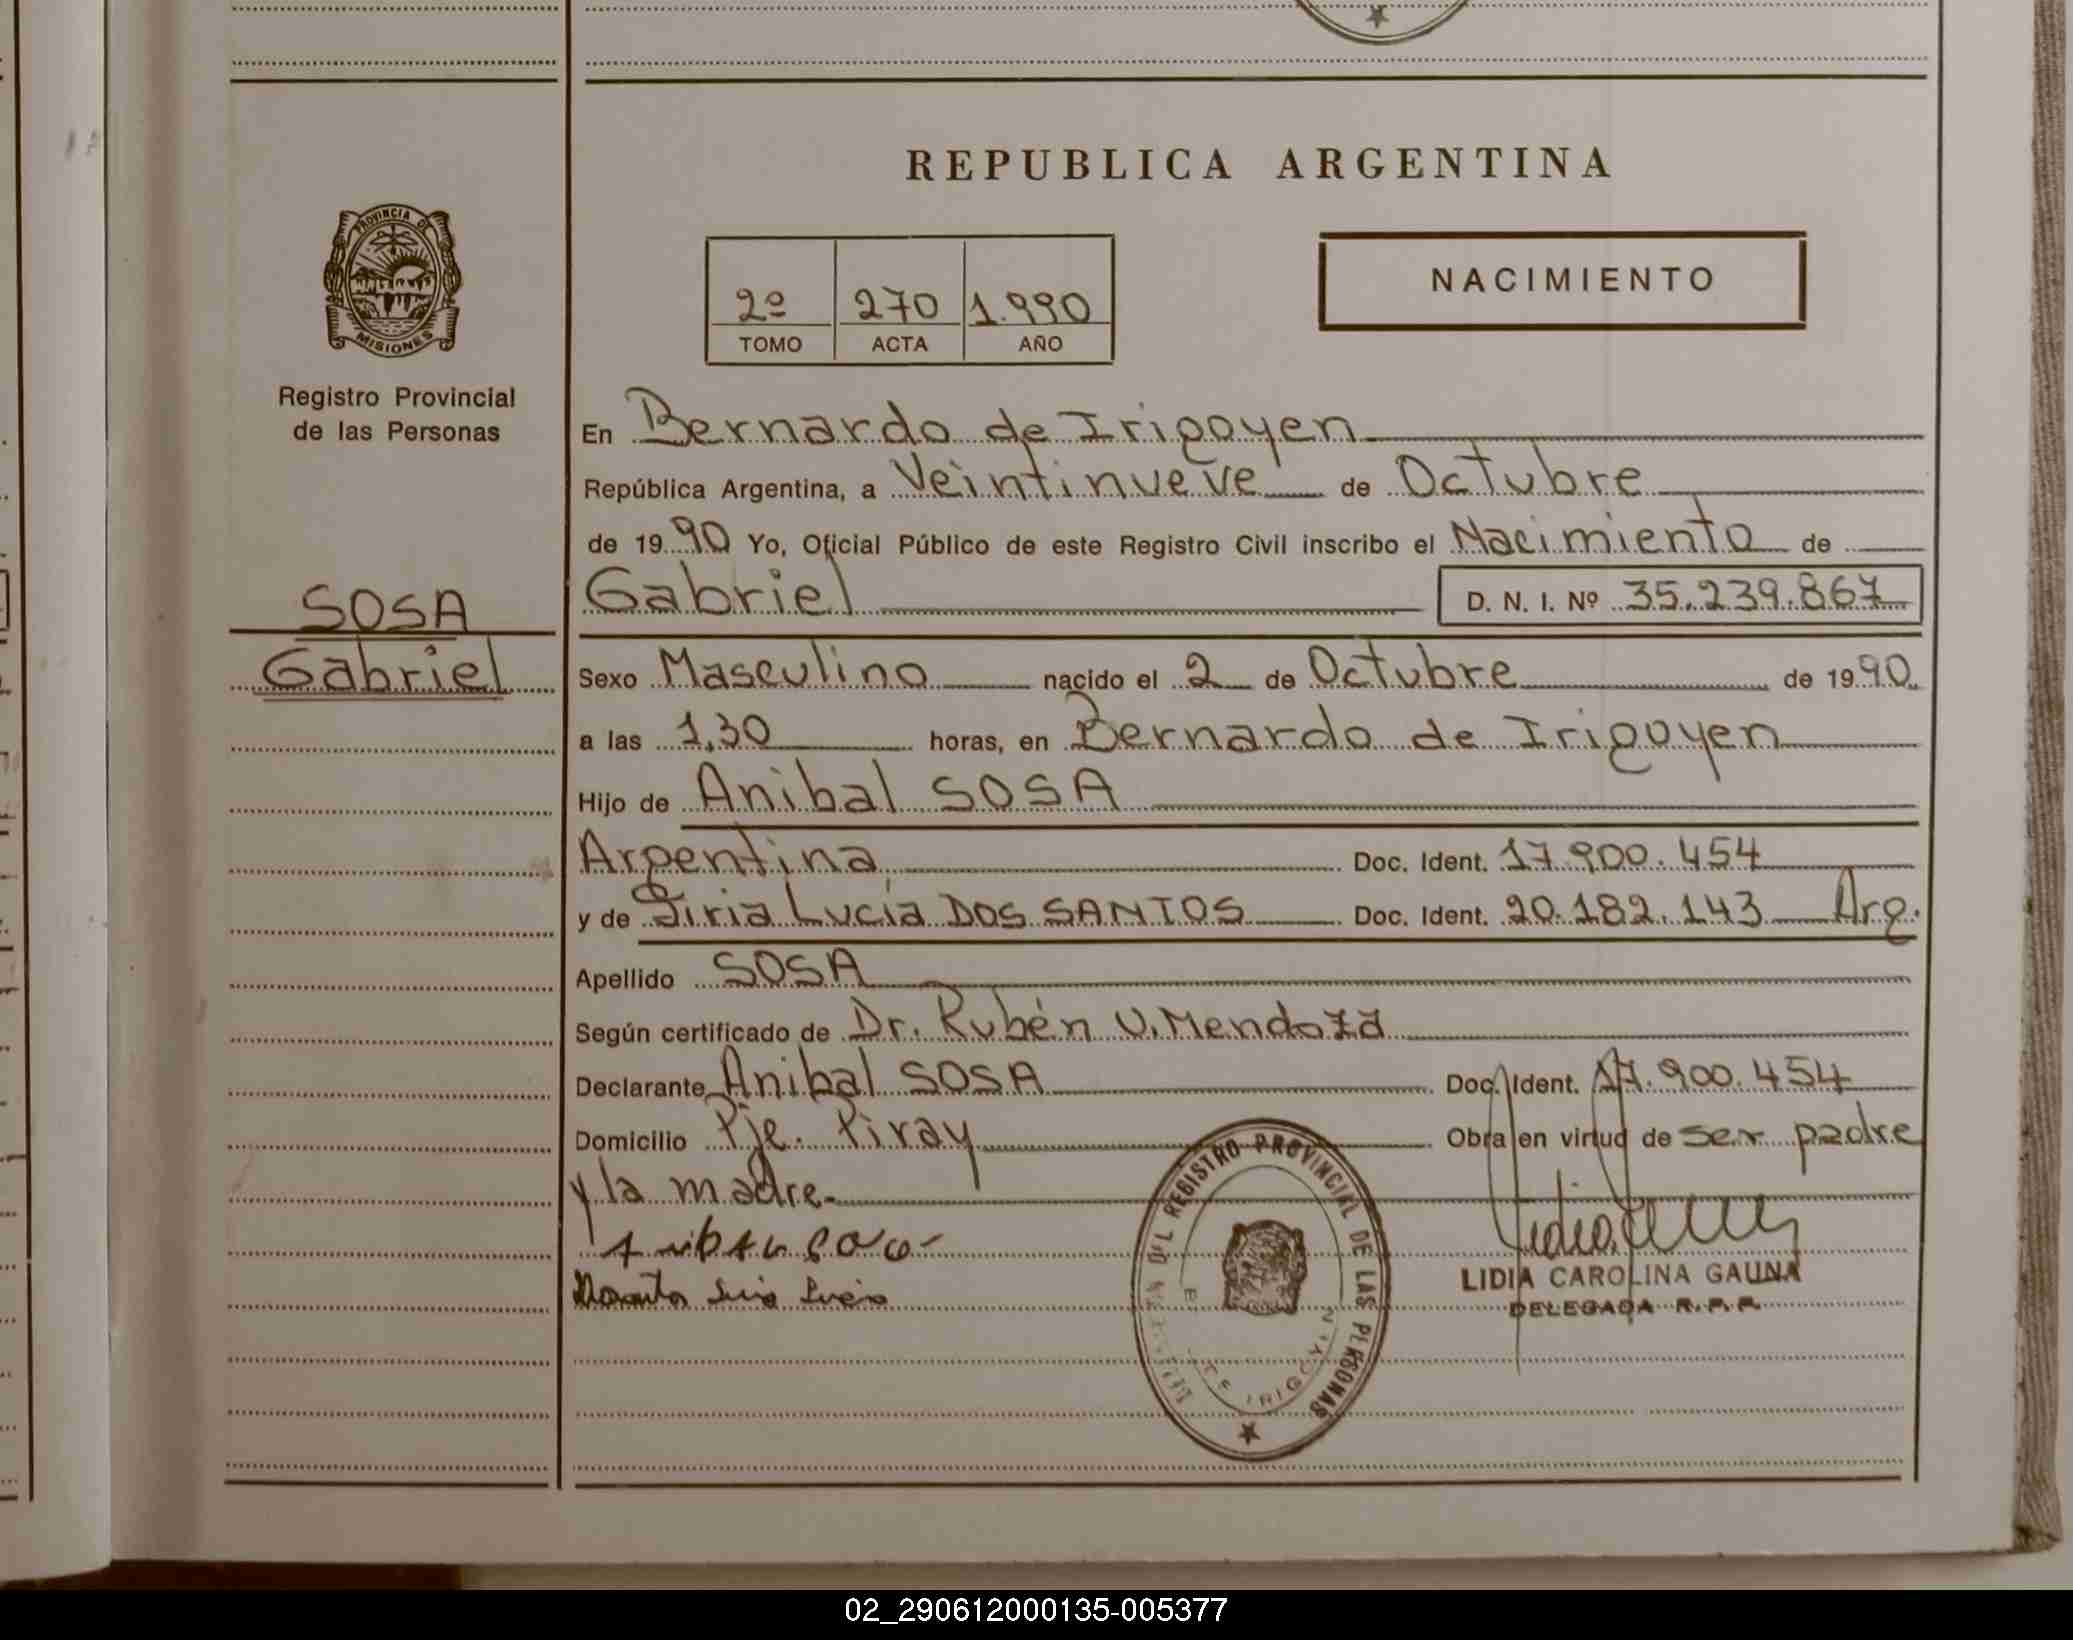 REPUBLICA ARGENTINA
PROVINCIA DE
MISIONES
Registro Provincial
de las Personas
2º 270 1.990
TOMO ACTA AÑO
NACIMIENTO
En Bernardo de Irigoyen
República Argentina, a Veintinueve de Octubre
de 1990 Yo, Oficial Público de este Registro Civil inscribo el Nacimiento de
SOSA
Gabriel
Gabriel D. N. I. Nº 35.239.867
Sexo Masculino nacido el 2 de Octubre de 1990
a las 1,30 horas, en Bernardo de Irigoyen
Hijo de Anibal SOSA
Argentina Doc. Ident. 17.900.454
y de Siria Lucía DOS SANTOS Doc. Ident. 20.182.143 Arg.
Apellido SOSA
Según certificado de Dr. Rubén V. Mendoza
Declarante Anibal SOSA Doc. Ident. 17.900.454
Domicilio Pje. Piray Obra en virtud de ser padre
y la madre.
DEL REGISTRO PROVINCIAL DE LAS PERSONAS
IRIGOYEN
LIDIA CAROLINA GAUNA
DELEGADA R.P.P.
02_290612000135-005377